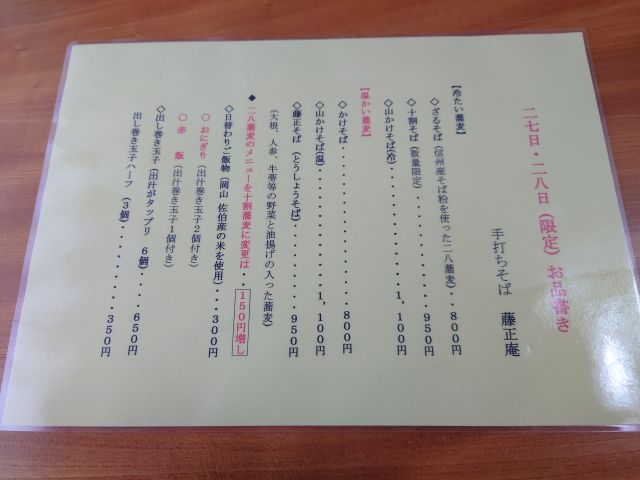 二七日・二八日(限定)お品書き
手打ちそば 藤正庵
【冷たい蕎麦】
◇ざるそば(信州産そば粉を使った二八蕎麦)・・800円
◇十割そば(数量限定)・・・・・・・・・950円
◇山かけそば(冷)・・・・・・・・・1,100円
【温かい蕎麦】
◇かけそば・・・・・・・・・・・・・・800円
◇山かけそば(温)・・・・・・・・・1,100円
◇藤正そば(とうしょうそば)・・・・・・・・950円
(大根、人参、牛蒡等の野菜と油揚げの入った蕎麦)
◆二八蕎麦のメニューを十割蕎麦に変更は・・150円増し
◇日替わりご飯物(岡山 佐伯産の米を使用)・・・300円
○おにぎり(出汁巻き玉子2個付き)
○赤 飯(出汁巻き玉子1個付き)
◇出し巻き玉子(出汁がタップリ 6個)・・・・650円
出し巻き玉子ハーフ(3個)・・・・・・・・350円